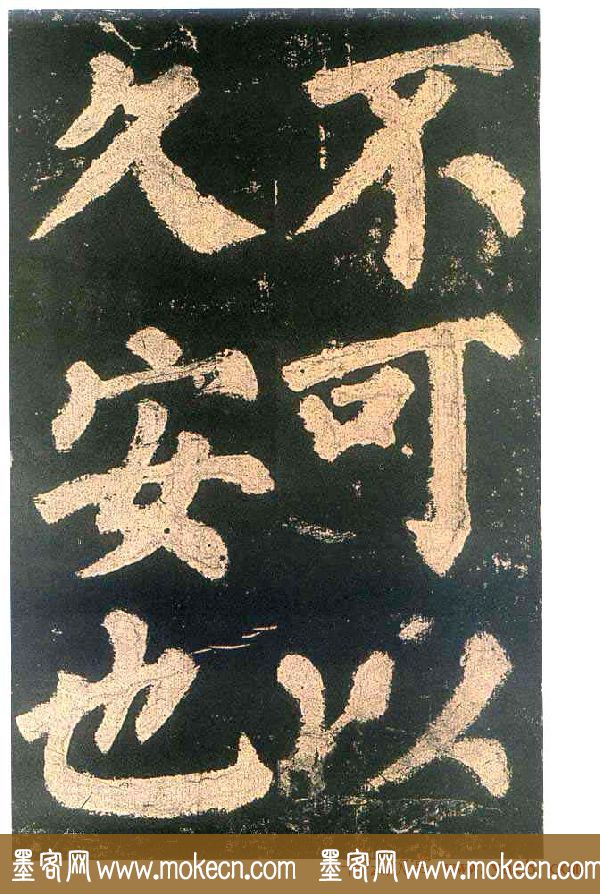 不可以
久安也
墨客网 www.mokecn.com 墨客网 www.mokecn.com